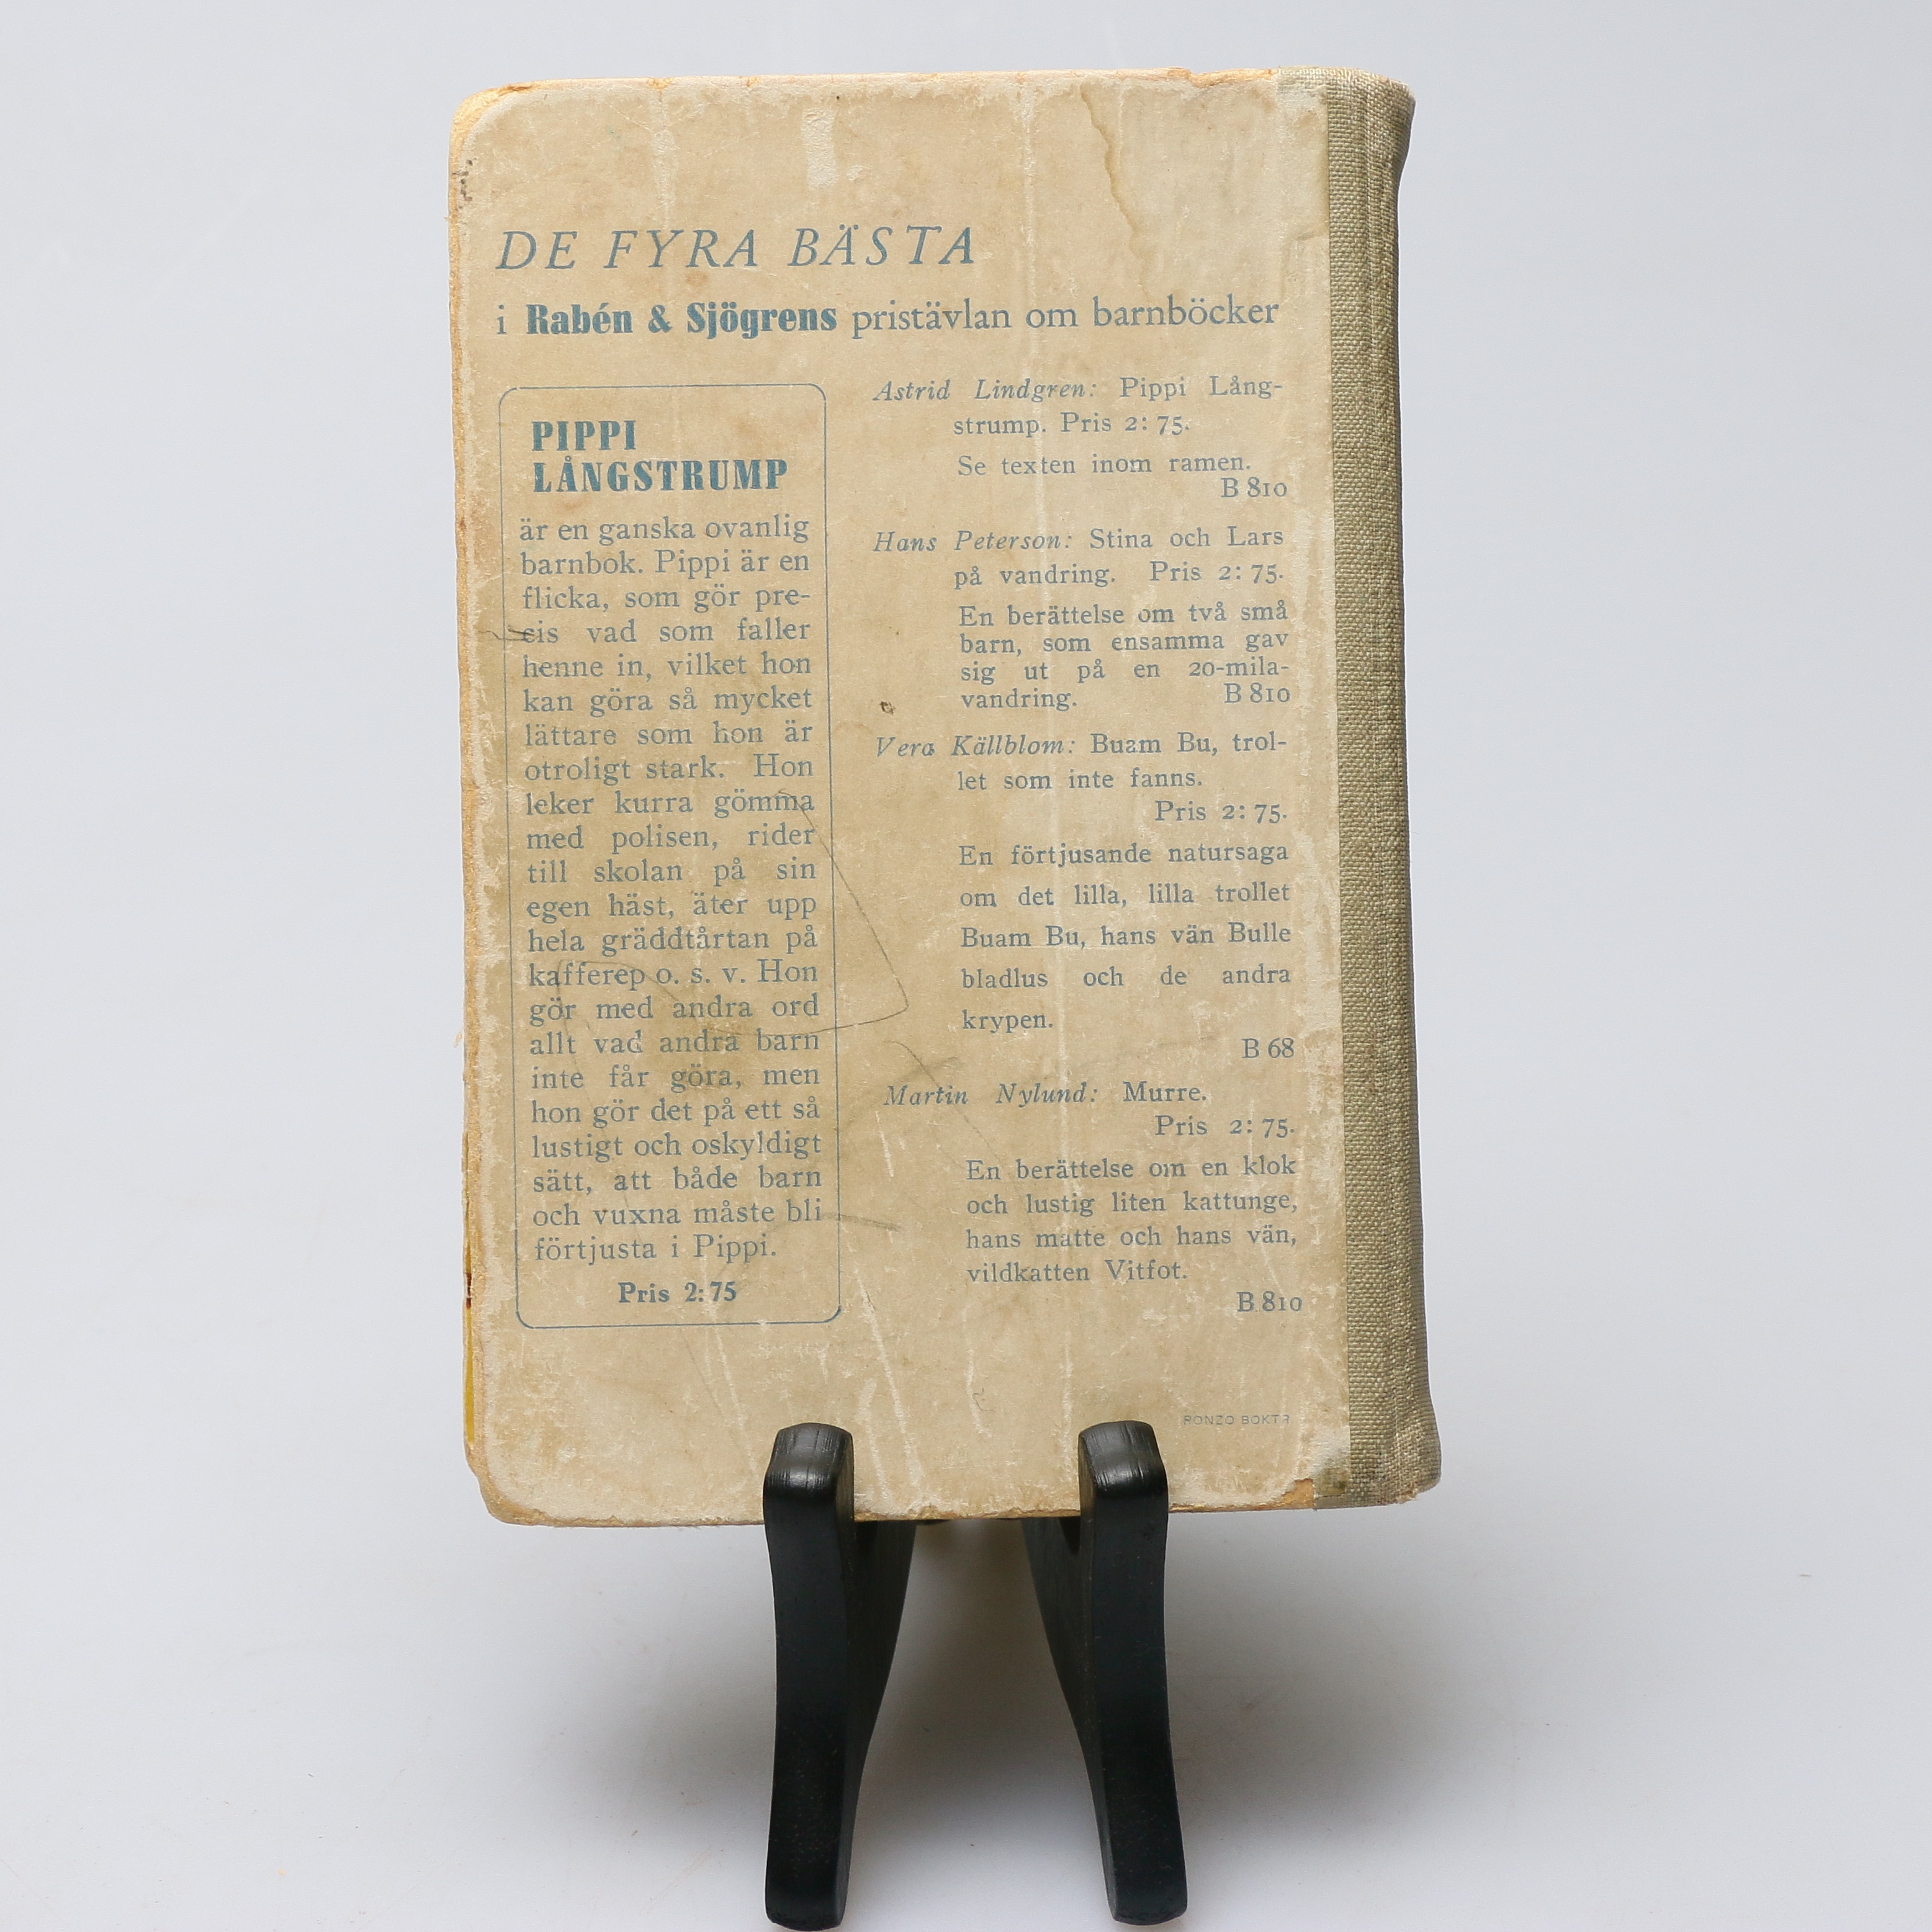 DE FYRA BÄSTA
i Rabén & Sjögrens pristävlan om barnböcker
PIPPI
LÅNGSTRUMP
är en ganska ovanlig
barnbok. Pippi är en
flicka, som gör pre-
cis vad som faller
henne in, vilket hon
kan göra så mycket
lättare som hon är
otroligt stark. Hon
leker kurra gömma
med polisen, rider
till skolan på sin
egen häst, äter upp
hela gräddtårtan på
kafferep o. s. v. Hon
gör med andra ord
allt vad andra barn
inte får göra, men
hon gör det på ett så
lustigt och oskyldigt
sätt, att både barn
och vuxna måste bli
förtjusta i Pippi.
Pris 2:75
Astrid Lindgren: Pippi Lång-
strump. Pris 2:75.
Se texten inom ramen.
B 810
Hans Peterson: Stina och Lars
på vandring. Pris 2:75.
En berättelse om två små
barn, som ensamma gav
sig ut på en 20-mila-
vandring. B 810
Vera Källblom: Buam Bu, trol-
let som inte fanns.
Pris 2:75.
En förtjusande natursaga
om det lilla, lilla trollet
Buam Bu, hans vän Bulle
bladlus och de andra
krypen.
B 68
Martin Nylund: Murre.
Pris 2:75.
En berättelse om en klok
och lustig liten kattunge,
hans matte och hans vän,
vildkatten Vitfot.
B 810
RONZO BOKTR